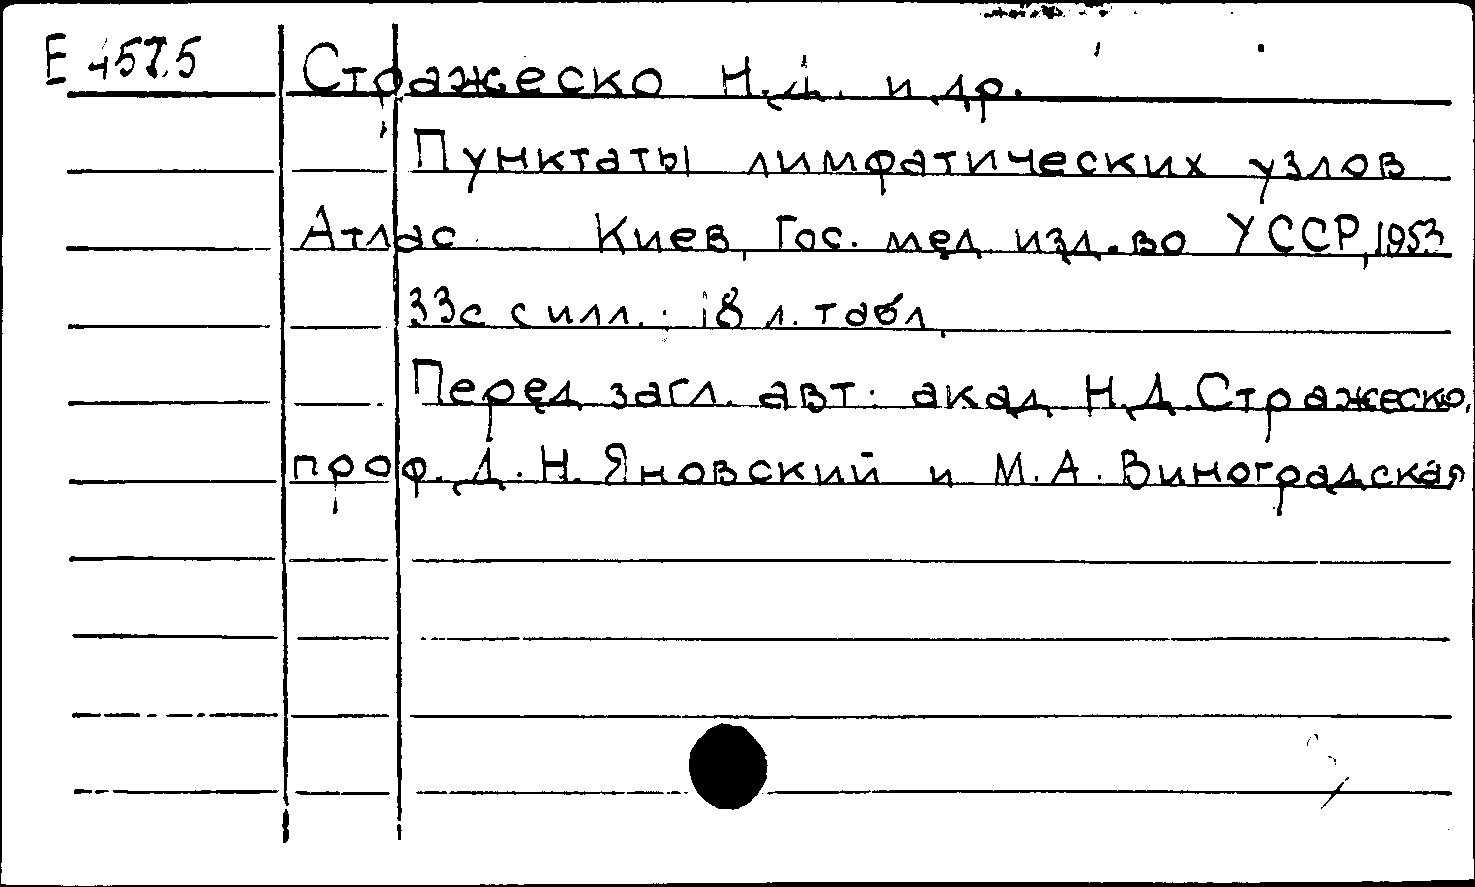 Е 4575
Стражеско Н.Д. и др.
Пунктаты лимфатических узлов
Атлас Киев, Гос. мед. изд-во УССР, 1953
33с с илл.; 18 л. табл.
Перед загл. авт: акад. Н.Д. Стражеско,
проф. Д.Н. Яновский и М.А. Виноградская